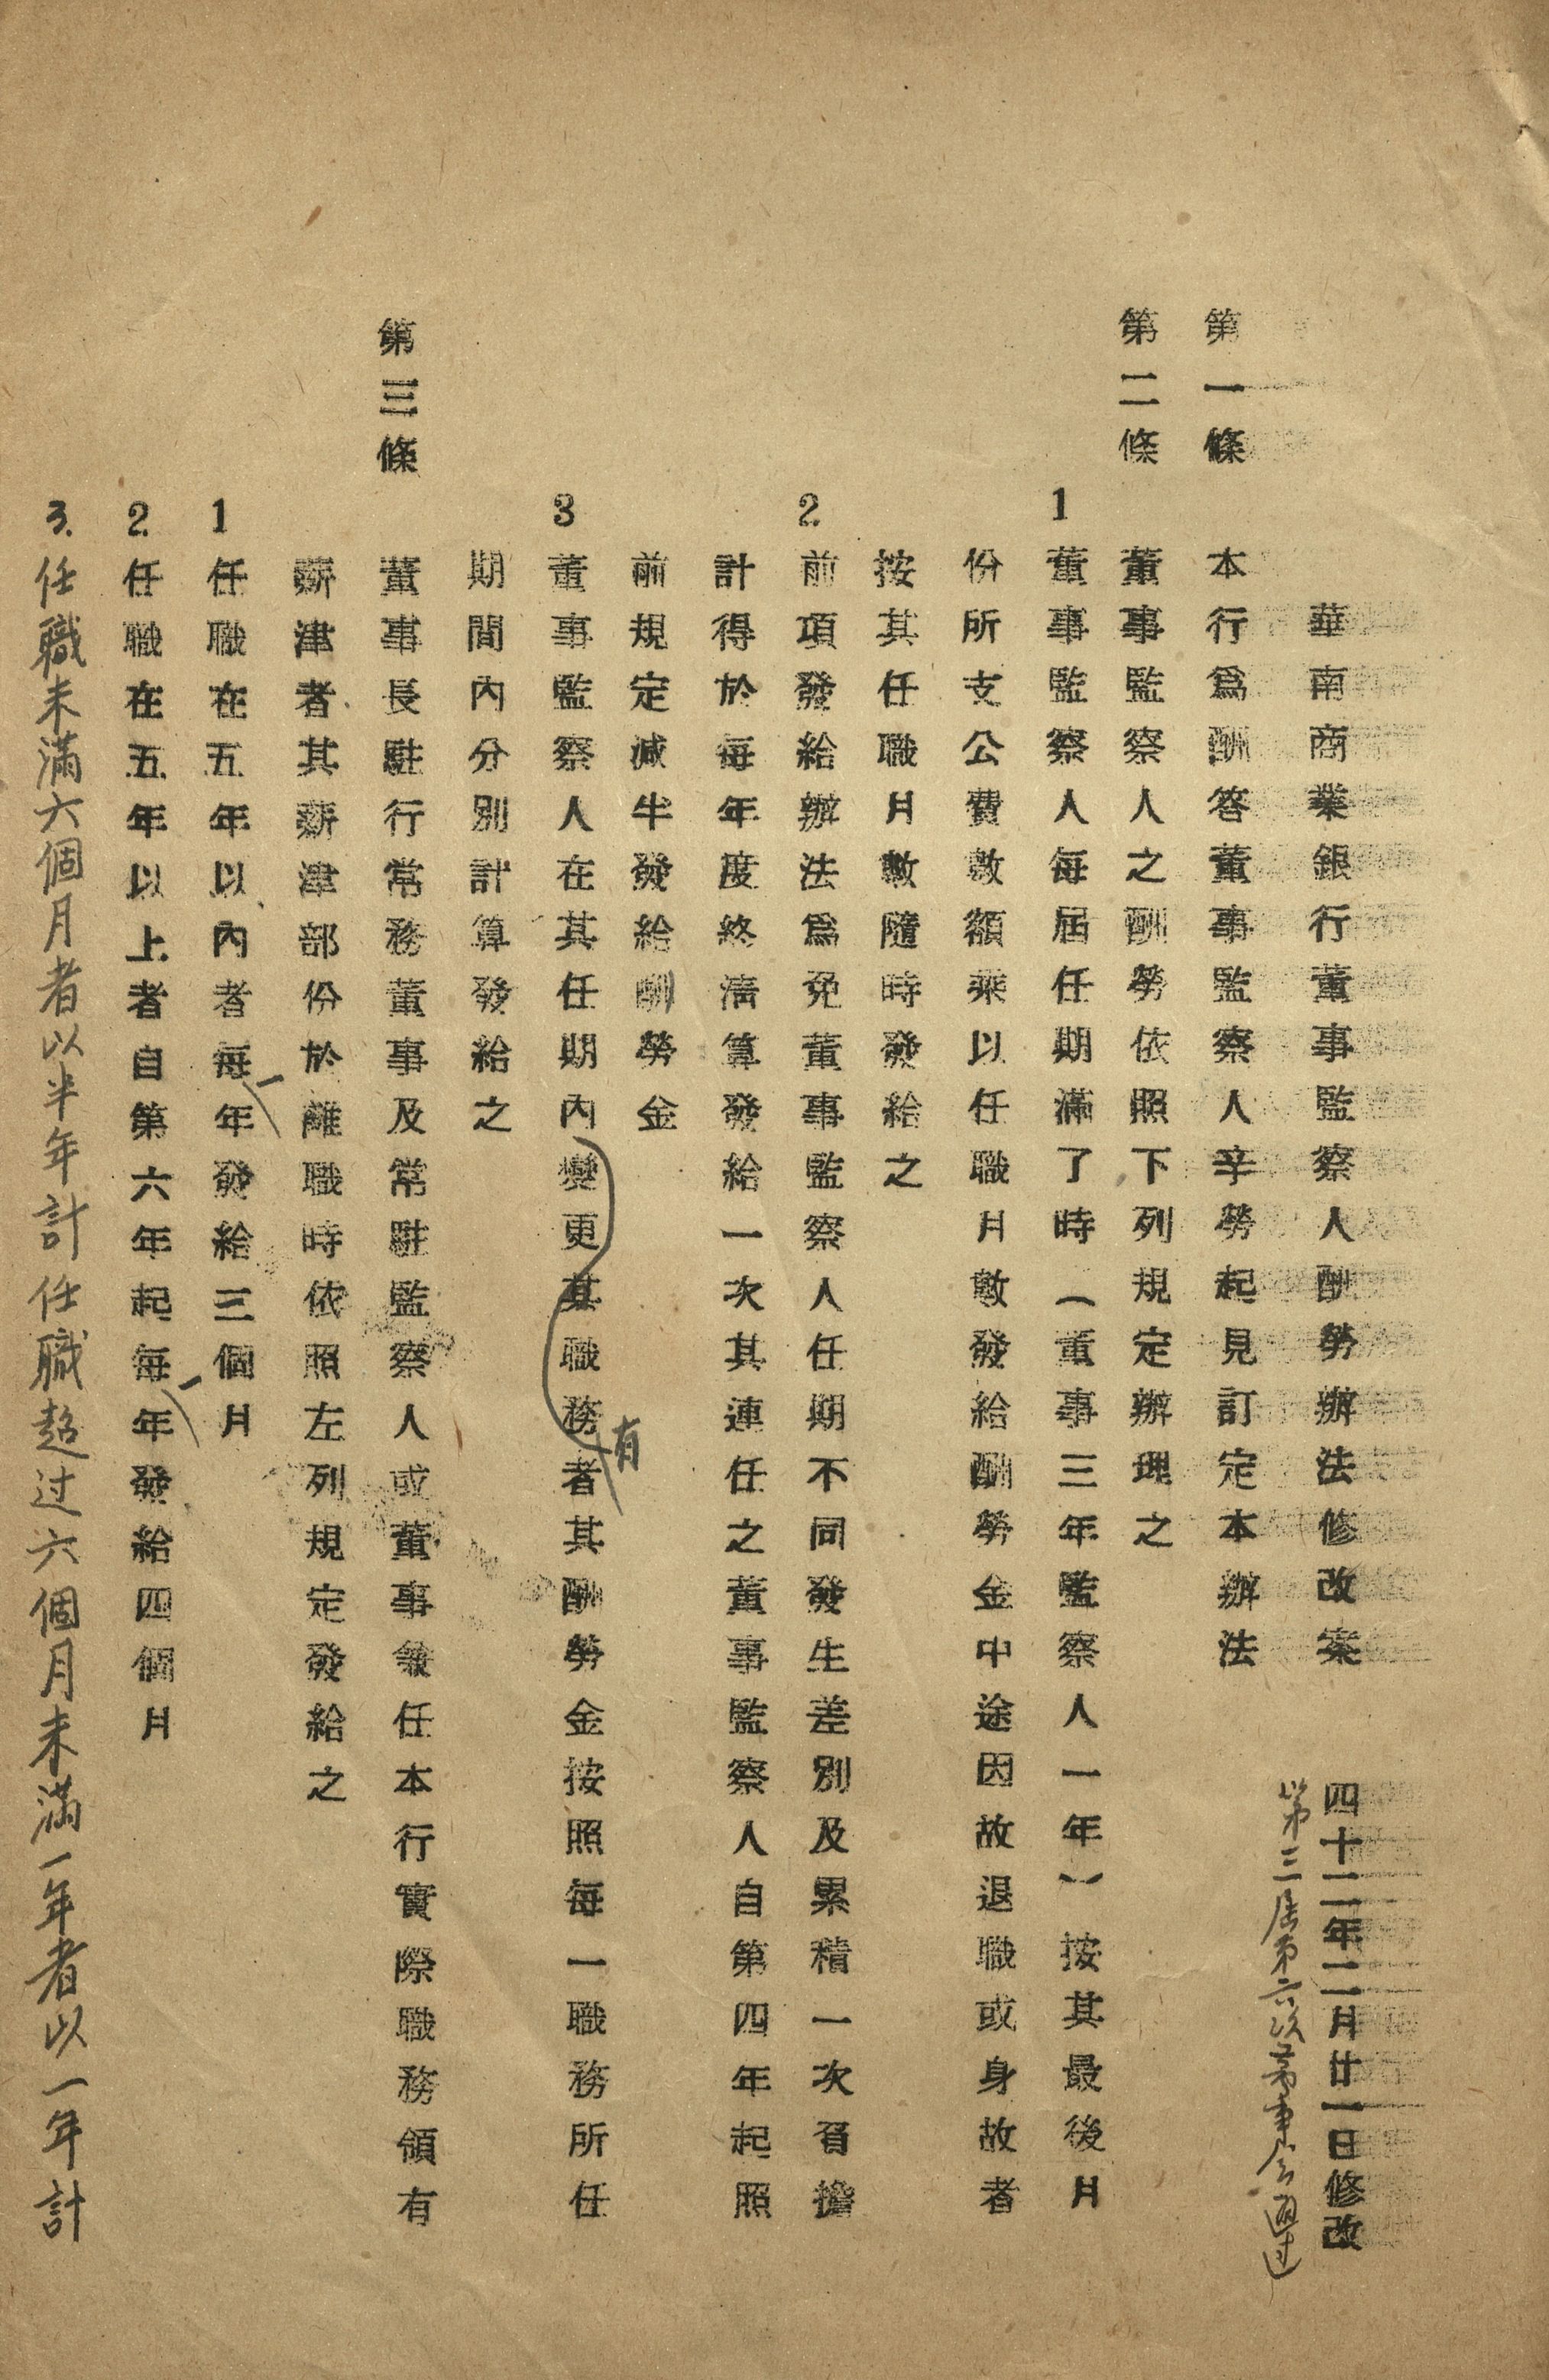 華南商業銀行董事監察人酬勞辦法修改案 四十二年二月廿一日修改
第三屆第六次董事会通过
第一條 本行爲酬答董事監察人辛勞起見訂定本辦法
第二條 董事監察人之酬勞依照下列規定辦理之
1 董事監察人每屆任期滿了時(董事三年監察人一年)按其最後月
份所支公費數額乘以任職月數發給酬勞金中途因故退職或身故者
按其任職月數隨時發給之
2. 前項發給辦法爲免董事監察人任期不同發生差別及累積一次負擔
計得於每年度終淸算發給一次其連任之董事監察人自第四年起照
前規定減半發給酬勞金
3 董事監察人在其任期內變更其職務者其酬勞金按照每一職務所任
有
期間內分別計算發給之
第三條 董事長駐行常務董事及常駐監察人或董事兼任本行實際職務領有
薪津者其薪津部份於離職時依照左列規定發給之
1 任職在五年以內者每年發給三個月
2. 任職在五年以上者自第六年起每年發給四個月
3. 任職未滿六個月者以半年計任職超过六個月未滿一年者以一年計